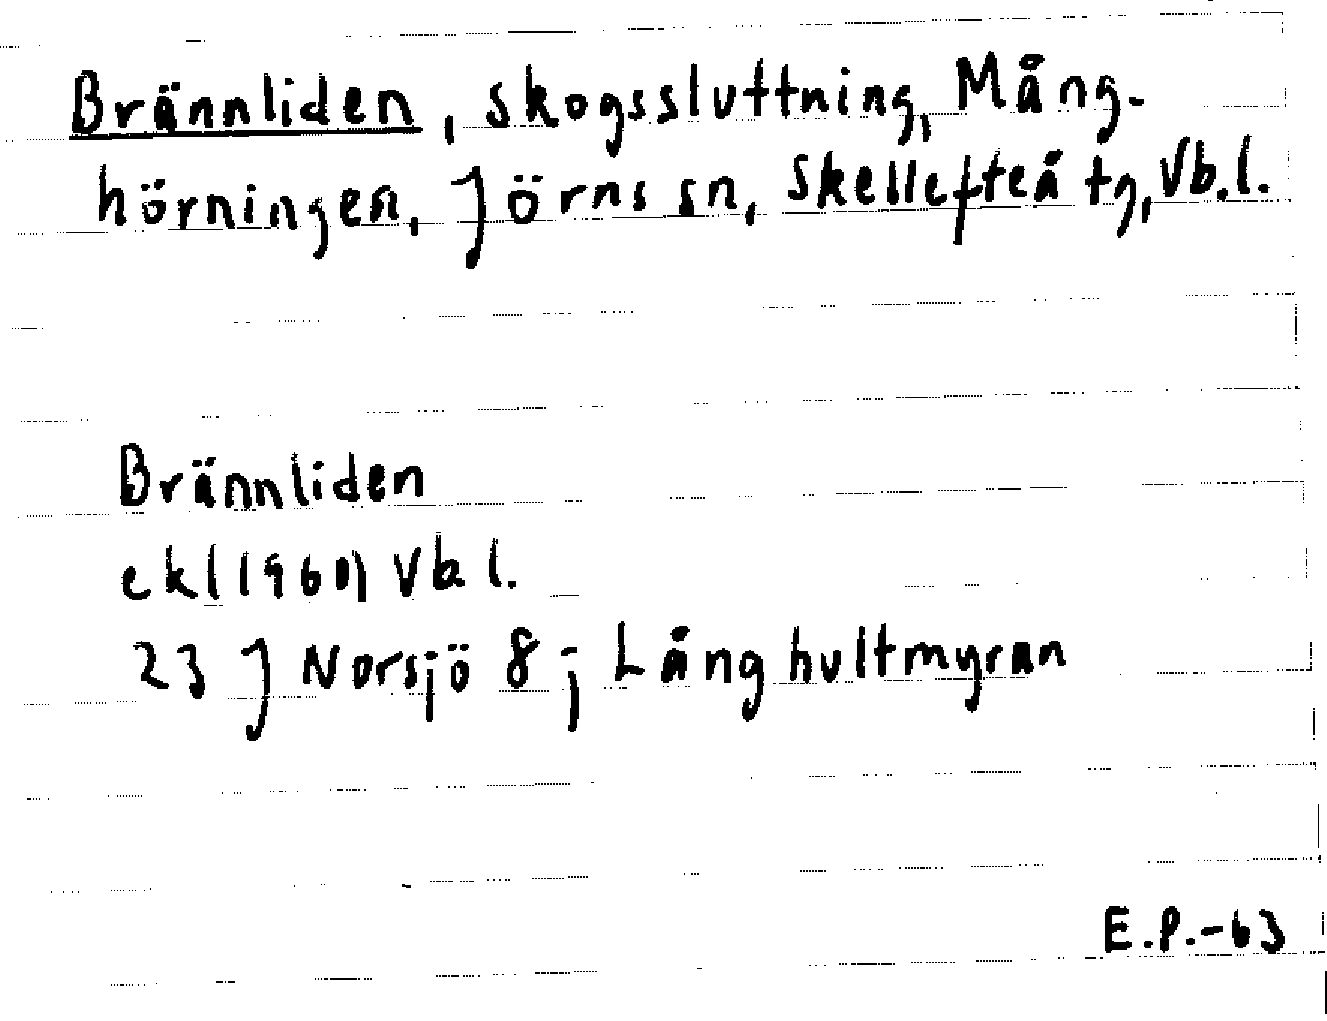 Brännliden, skogssluttning, Mång-
hörningen, Jörns sn, Skellefteå tg, Vb.l.
Brännliden
ekl (1960) Vb l.
23 J Norsjö 8 j Långhultmyran
E.P.-63